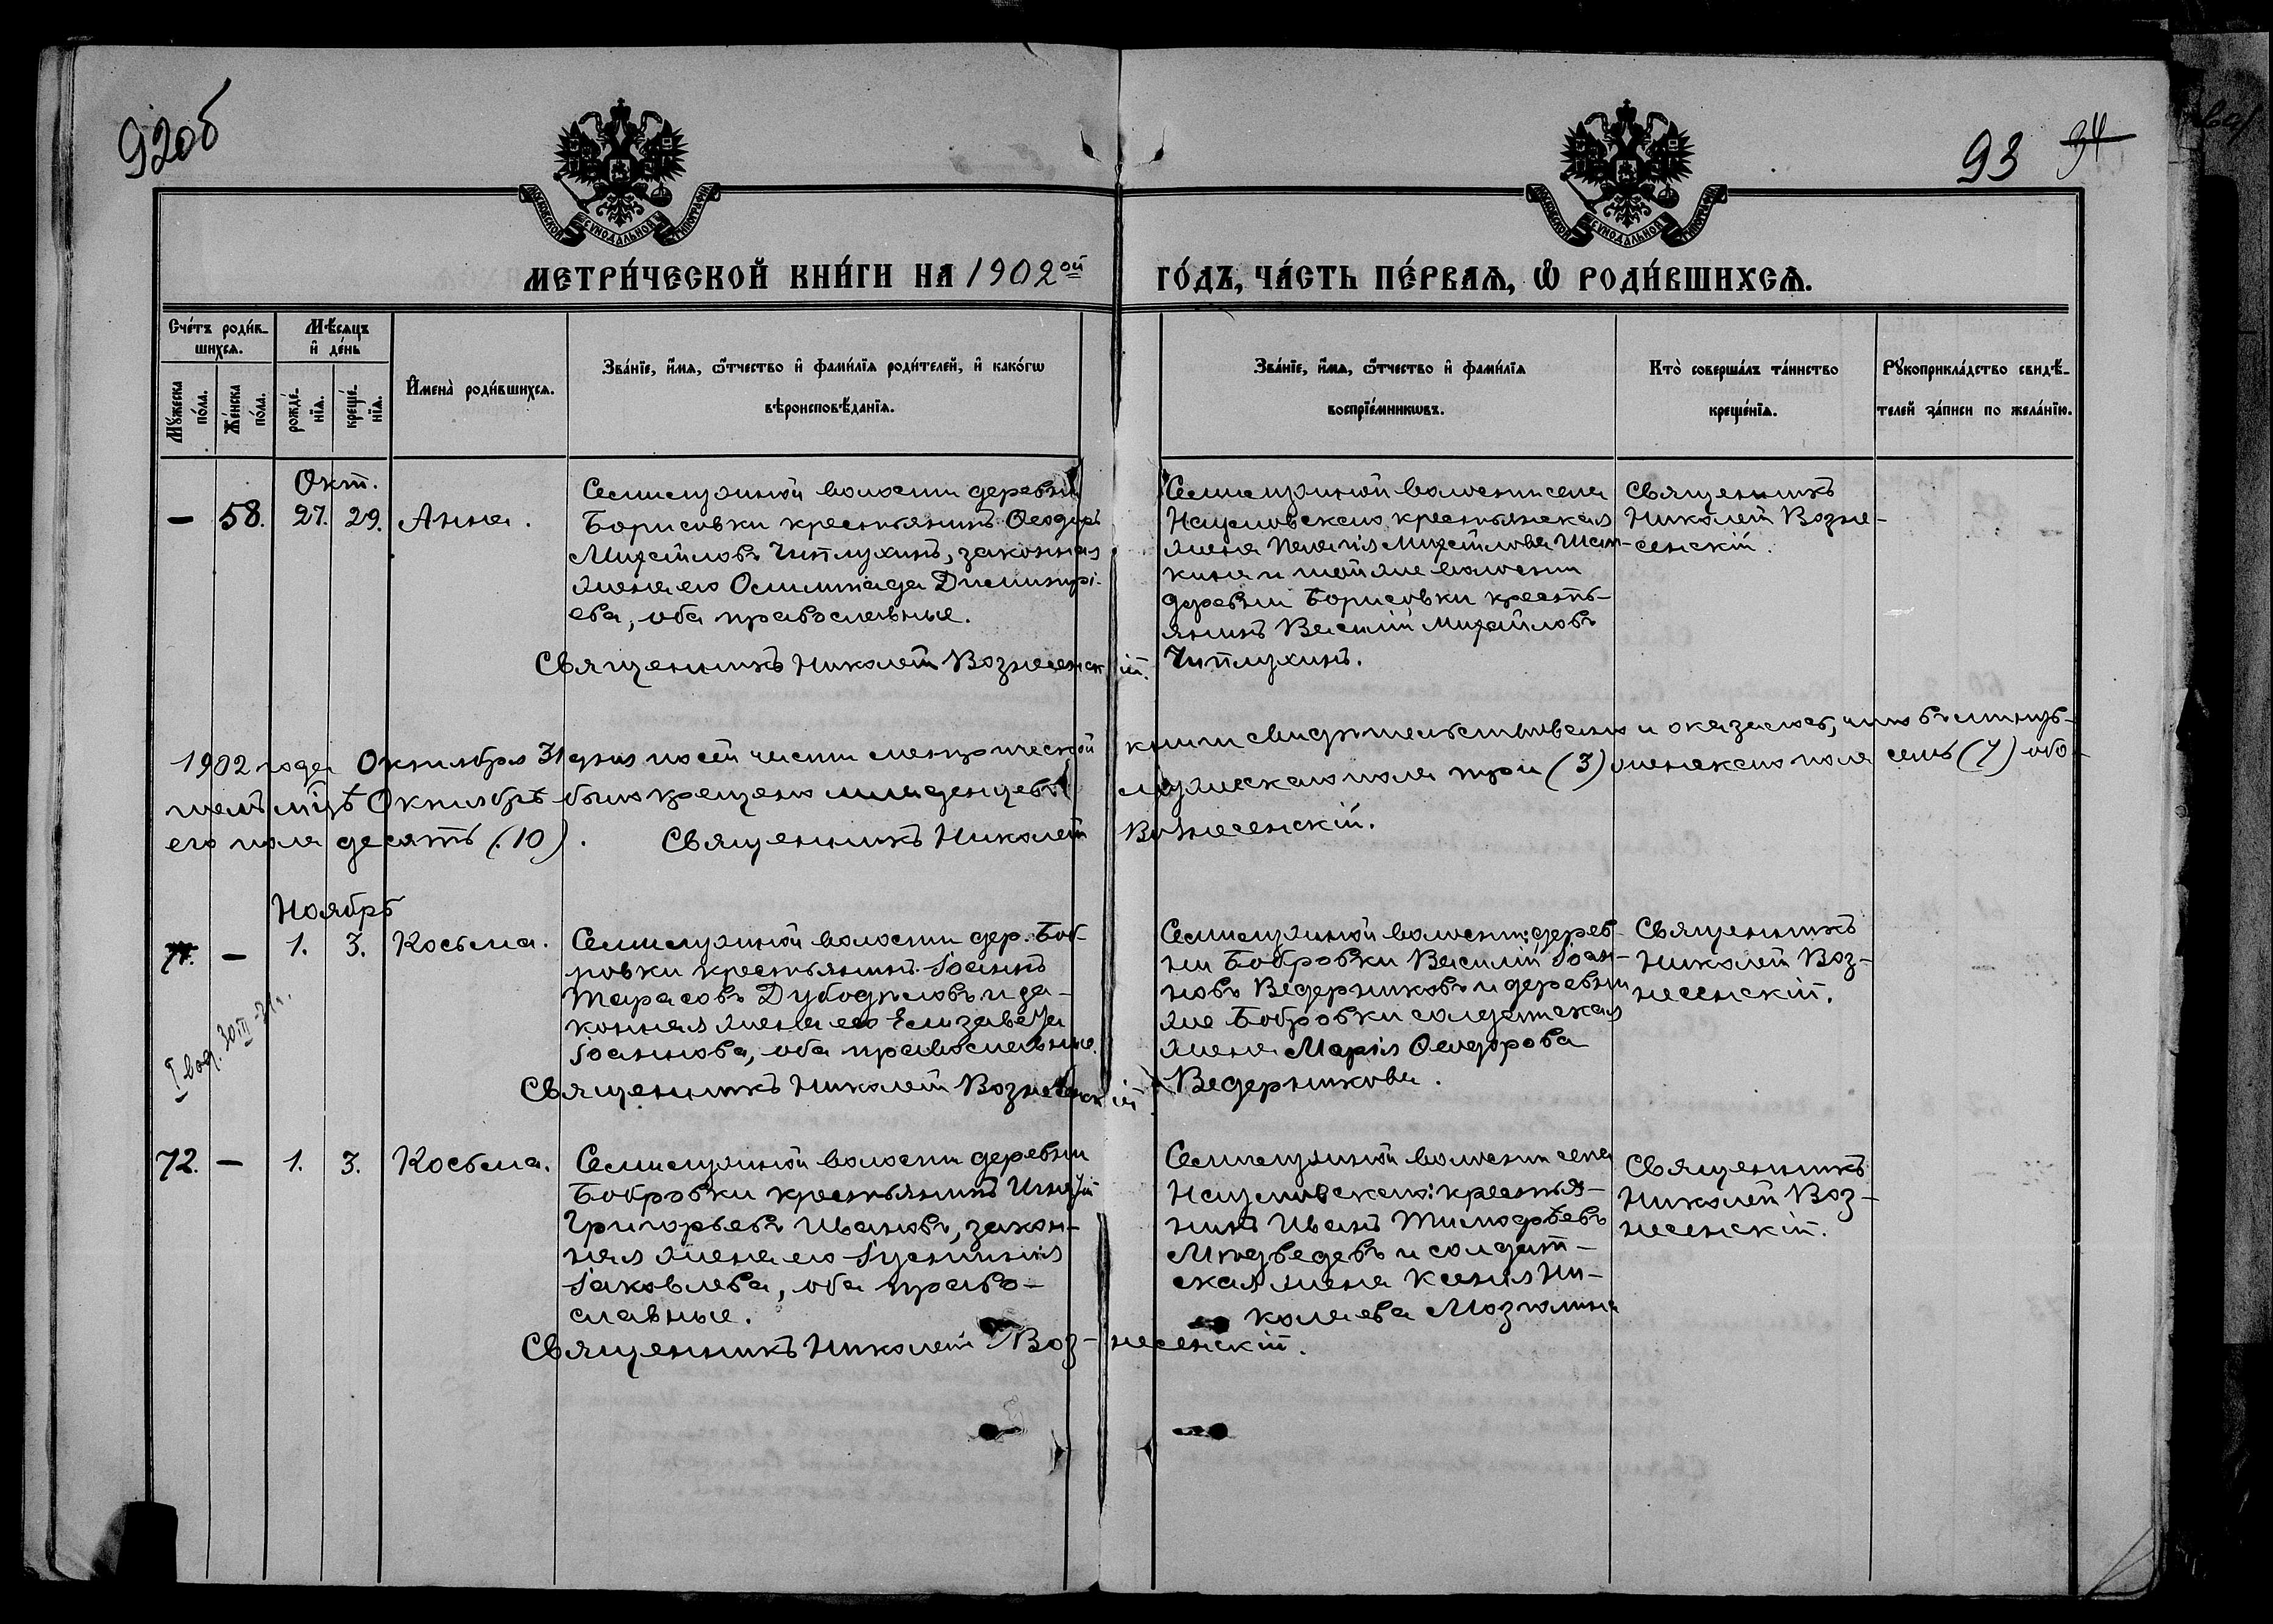 92об
93 94
МЕТРИ́ЧЕСКОЙ КНИ́ГИ НА 1902ой ГО́ДЪ, ЧА́СТЬ ПЕ́РВАѦ, Ѽ РОДИ́ВШИХСѦ.
Сче́тъ роди́вшихсѧ.
Мꙋ́жеска по́ла.
Же́нска по́ла.
Мѣ́сяцъ и҆ де́нь
рожде́нїѧ.
креще́нїѧ.
И҆мена̀ роди́вшихсѧ.
Зва́нїе, и҆́мѧ, ѻ҆́тчество и҆ фами́лїѧ роди́телей, и҆ како́гѡ
вѣроисповѣ́данїѧ.
Зва́нїе, и҆́мѧ, ѻ҆́тчество и҆ фами́лїѧ
воспрїе́мникѡвъ.
Кто̀ соверша́лъ та́инство
креще́нїѧ.
Рꙋкоприкла́дство свидѣ́-
телей за́писи по жела́нїю.
Окт.
— 58. 27. 29. Анна.
Семилужной волости деревни
Борисовки крестьянинъ Ѳеодоръ
Михаиловъ Чиплухинъ, законная
жена его Олимпіада Димитрі-
ева, оба православные.
Священникъ Николай Вознесенскій.
Семилужной волости села
Наумовскаго крестьянская
жена Михаилова
кина и той же волости
деревни Борисовки кресть-
янинъ Василій Михайловъ
Чиплухинъ.
Священникъ
Николай Возне-
сенскій.
1902 года Октября 31 дня по сей части метрической книги свидѣтельствовано и оказалось, что въ минув-
шемъ мцѣ Октябрѣ было крещено младенцевъ мужескаго пола три (3) женскаго пола семь (7) обо-
его пола десять (10). Священникъ Николай Вознесенскій.
Ноябрь
71. — 1. 3. Косьма.
Семилужной волости дер. Боб-
ровки крестьянинъ Іоаннъ
Тарасовъ Дубодѣловъ и за-
конная жена его Елизавета
Іоаннова, оба православные.
Священникъ Николай Вознесенскій
Семилужной волости: дерев-
ни Бобровки Василій Іоан-
новъ Ведерниковъ и деревни
же Бобровки солдатская
жена Марія Ѳеодорова
Ведерникова.
Священникъ
Николай Воз-
несенскій.
72. — 1. 3. Косьма.
Семилужной волости деревни
Бобровки крестьянинъ
Григорьевъ Ивановъ, закон-
ная жена его Іустинія
Іаковлева, оба право-
славные.
Священникъ Николай Воз-несенскій.
Семилужной волости села
Наумовскаго: крестья-
нинъ Иванъ Тимофѣевъ
Медведевъ и солдат-
ская жена Ксенія Ни-
колаева Мозголина
Священникъ
Николай Воз-
несенскій.